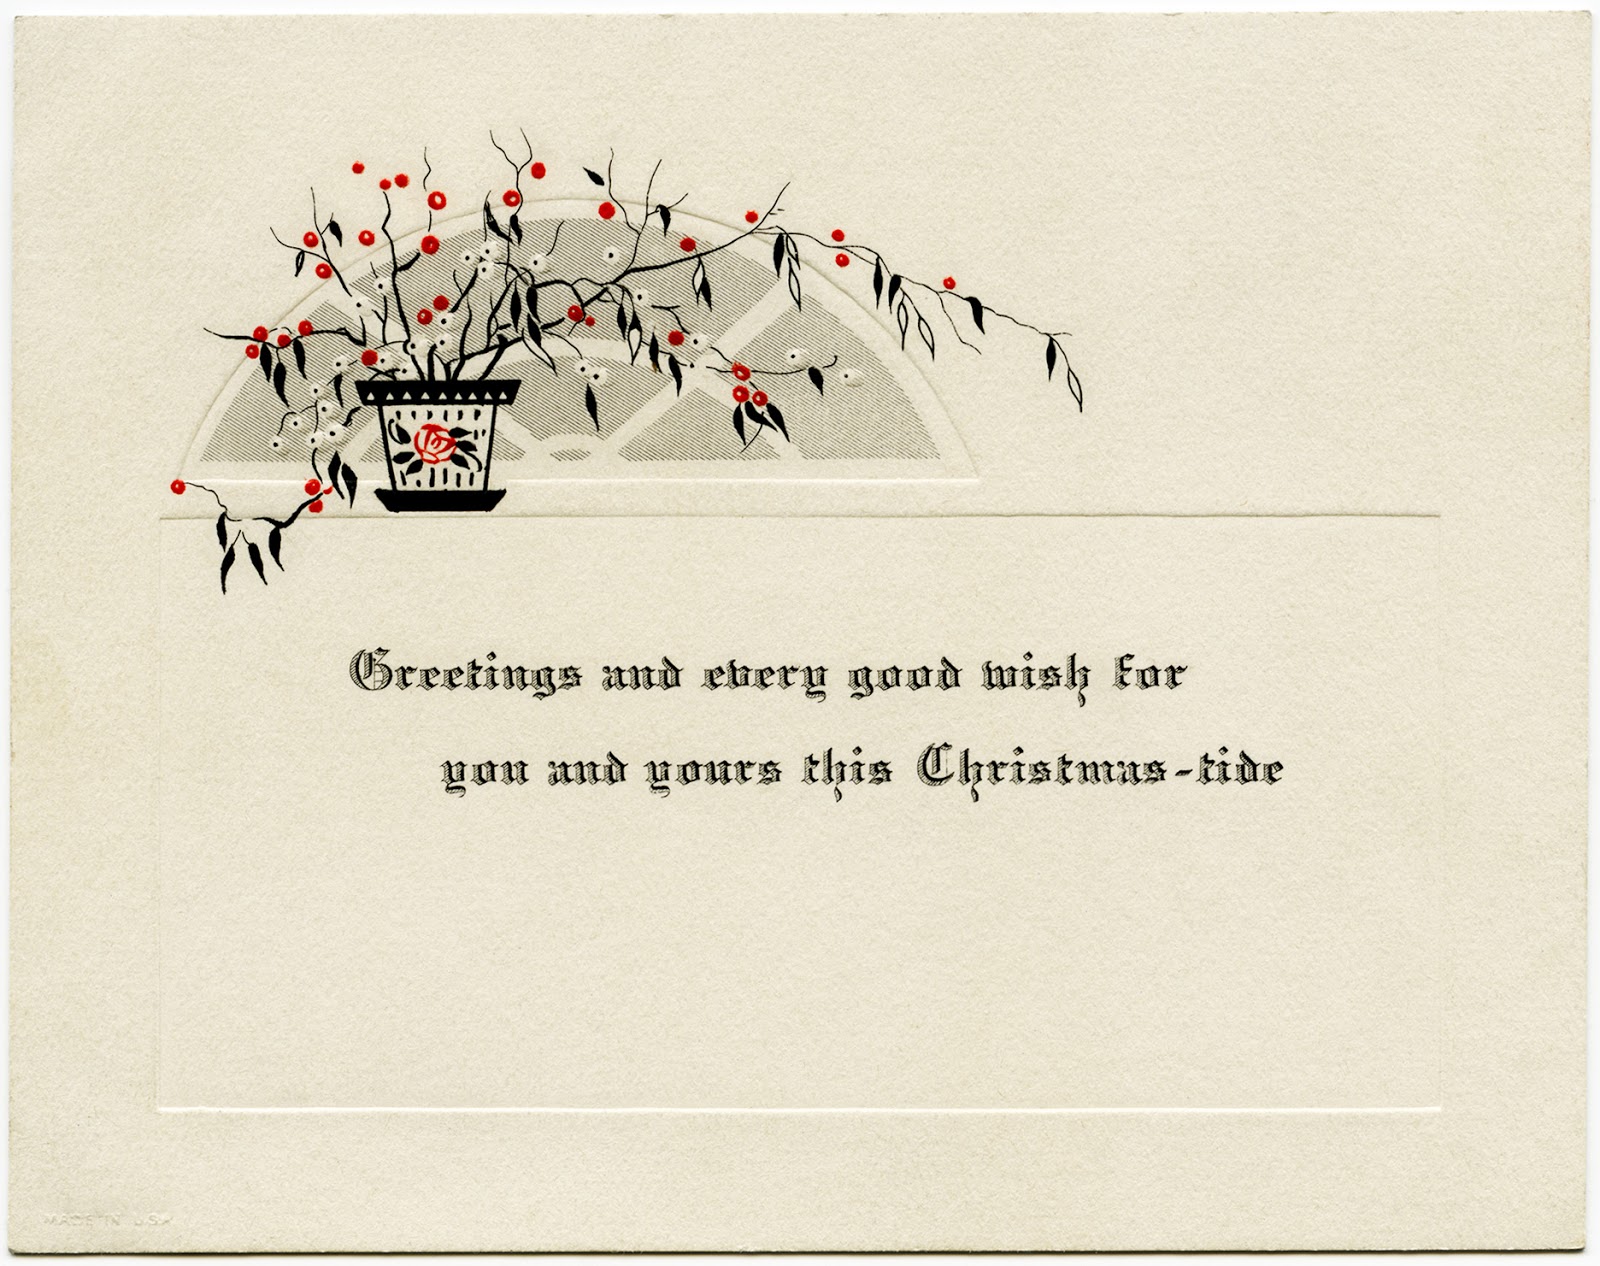 Greetings and every good wish for
you and yours this Christmas-tide
MADE IN U.S.A